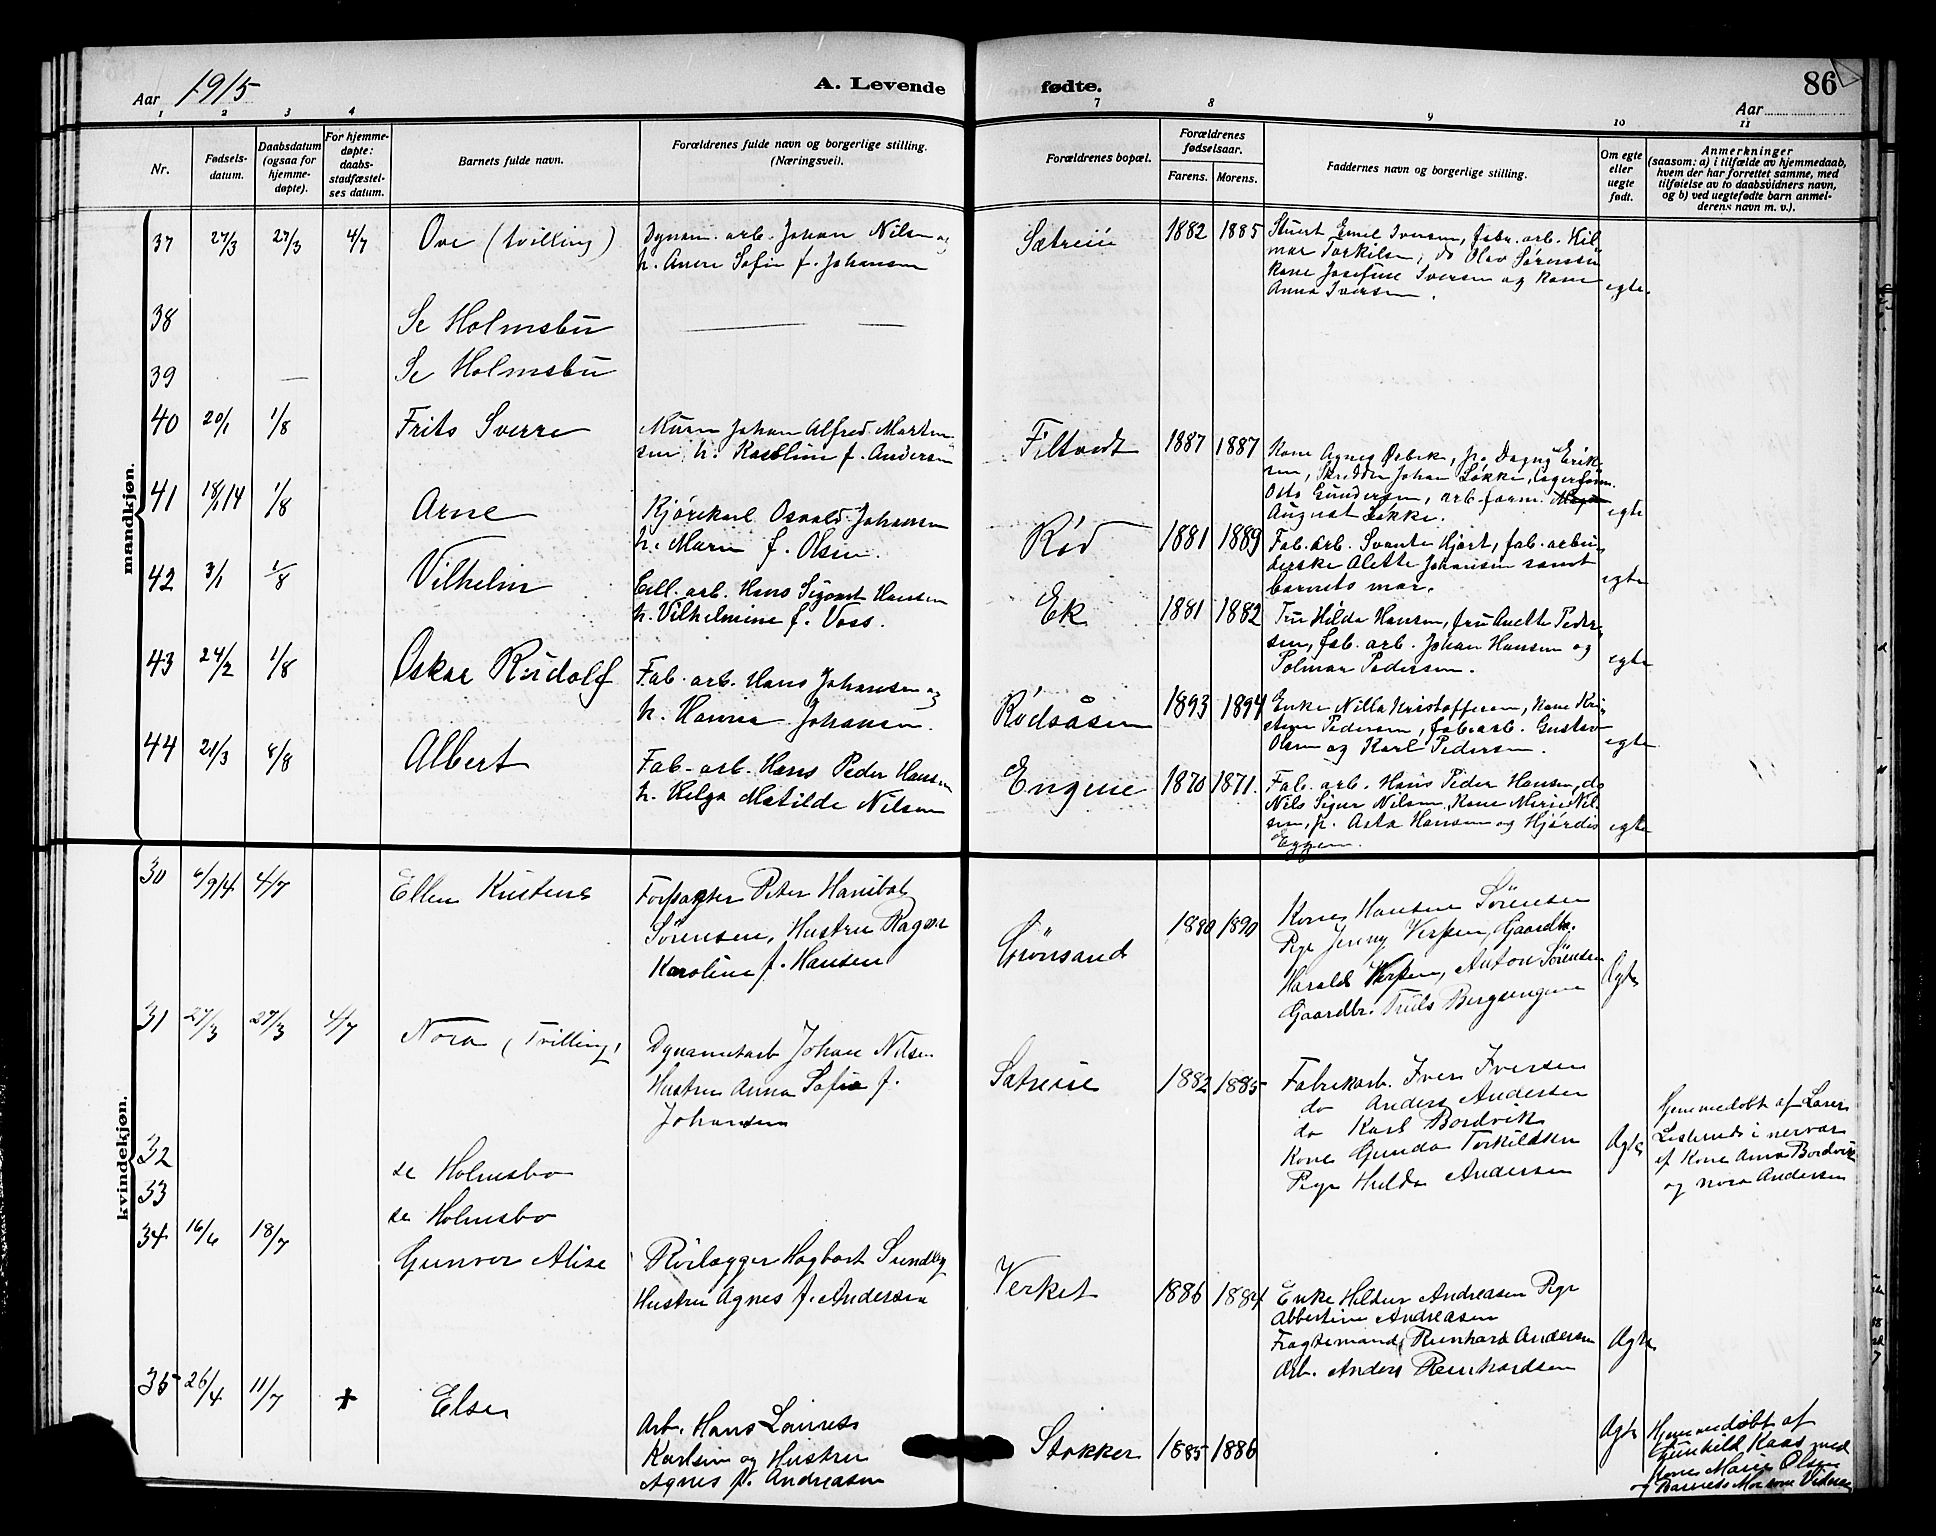 Aar 1915
A. Levende fødte.
86
Aar
1 2 3 4 7 8 9 10 11
Nr.
Fødsels-
datum.
Daabsdatum
(ogsaa for
hjemme-
døpte).
For hjemme-
døpte:
daabs-
stadfæstel-
ses datum.
Barnets fulde navn.
Forældrenes fulde navn og borgerlige stilling.
(Næringsvei).
Forældrenes bopæl.
Forældrenes
fødselsaar.
Farens. Morens.
Faddernes navn og borgerlige stilling.
Om egte
eller
uegte
født.
Anmerkninger
(saasom: a) i tilfælde av hjemmedaab,
hvem der har forrettet samme, med
tilføielse av to daabsvidners navn,
og b) ved uegtefødte barn anmel-
derens navn m. v.).
mandkjøn.
37 27/3 27/3 4/7 Ove (tvilling)
Dynam. arb. Johan Nilsen og
h. Anne Sofie f. Johansen
Sætreiie 1882 1885
Stuert Emil Iversen, fabr. arb. Hil
mar Torkilsen, do Olav Sørensen
kone Josefine Iversen og kone
Anna Iversen.
egte.
38 Se Holmsbu
39 Se Holmsbu
40 20/1 1/8 Frits Sverre
Murer Johan Alfred Marten-
sen h. Karoline f. Andersen
Filtvedt 1887 1887
Kone Agnes Ørbek, p. Dagny Erik-
sen, Skrædder Johan Løkke, Lagerform.
Otto Gundersen, arb. form.
August Løkke.
egte
41 18/1 14 1/8 Arne
Kjørekarl Osvald Johansen
h. Marie f. Olsen.
Rød 1881 1889
Fab. arb. Svante Hjort, fab. arbei-
derske Alette Johansen samt
barnets mor.
egte
42 3/1 1/8 Vilhelm
Cell. arb. Hans Sigvart Hansen
h. Vilhelmine f. Voss.
Ek 1881 1882
Fru Hilda Hansen, fru Anette Peder-
sen, fab. arb. Johan Hansen og
Solmar Pedersen.
egte
43 24/2 1/8 Oskar Rudolf
Fab. arb. Hans Johansen og
h. Hanna Johansen.
Rødsåsen 1893 1894
Enke Nilla Kristoffersen, Kone Kri-
stine Pedersen, fab. arb. Gustav
Olsen og Karl Pedersen.
egte
44 21/3 8/8 Albert
Fab. arb. Hans Peder Hansen
h. Helga Matilde Nilsen
Engene 1870 1871.
Fab. arb. Hans Peder Hansen, do
Nils Sigur Nilsen, Kone Marie Nil-
sen, p. Asta Hansen og Hjørdis
Eggen.
egte
kvindekjøn.
30 6/9 14 4/7 Ellen Kristens
Forpagter Peter Hanibal
Sørensen, Hustru Ragna
Karoline f. Hansen
Grønsand 1880 1890
Kone Hansine Sørensen
Pige Jenny Verpen, Gaardbr.
Harald Verpen, Anton Sørensen
Gaardbr. Truls Bergsengene
Ægte
31 27/3 27/3 4/7 Nora (Tvilling)
Dynamitarb Johan Nilsen
Hustru Anna Sofia f.
Johansen
Sætreiie 1882 1885
Fabrikarb. Iver Iversen
do Anders Andersen
do Karl Bordvik
Kone Gunda Torkildsen
Pige Hulda Andersen
Ægte
Hjemmedøbt af Lærer
i nervær
af Kone Anna Bordvik
og Nora Andersen
32 se Holmsbo
33 se Holmsbo
34 16/6 18/7 Gunvor Alise
Rørlægger Hagbart Sundby
Hustru Agnes f. Andersen
Verket 1886 1884
Enke Hildur Andreasen Pige
Abbertine Andreasen
Fragtemand Reinhard Andersen
Arb. Anders Reinhardsen
Ægte
35 26/4 11/7 + Else
Arb. Hans Lauretz
Karlsen og Hustru
Agnes f. Andreasen
Stokker 1885 1886
Ægte
Hjemmedøbt af
Gunhild Kaas med
Kone Marie Olsen
og Barnets Mor som Vidner